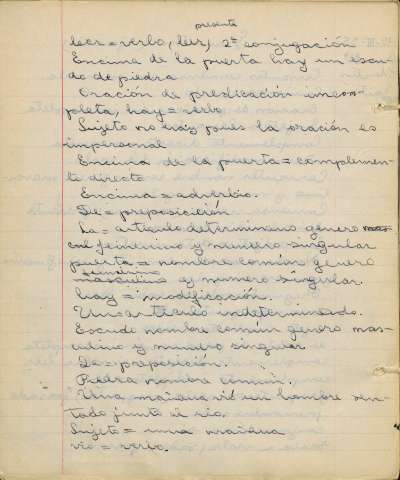 presente
leer = verbo, leer, 2ª conjugación
Encima de la puerta hay un escu-
do de piedra
Oración de predicación incom-
pleta, hay = verbo
Sujeto no hay pues la oración es
impersonal
Encima de la puerta = complemen-
to directo
Encima = adverbio.
De = preposición
La = artículo determinano genero mas-
cul femenino y numero singular
puerta = nombre común genero
femenino
masculino y numero singular.
hay = modificación.
Un = artículo indeterminado.
Escudo nombre común genero mas-
culino y numero singular
De = preposición.
Piedra nombre común.
Una mañana vió un hombre sen-
tado junto al río.
Sujeto = una mañana
vió = verbo.